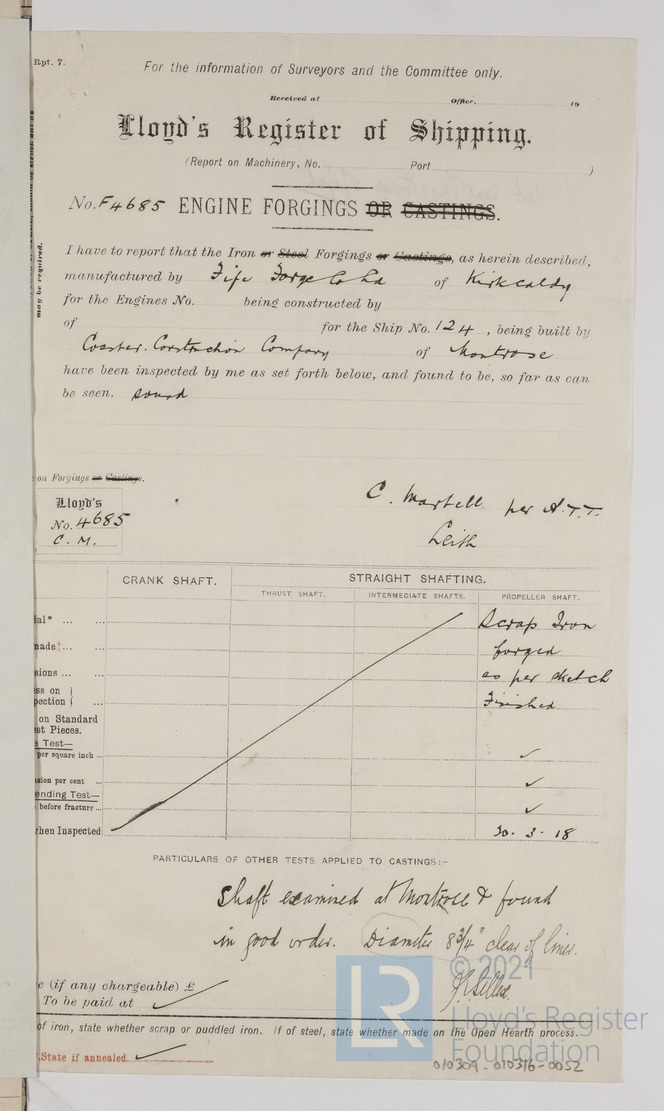 Rpt. 7.
For the information of Surveyors and the Committee only.
Received at Office, 19
Lloyd's Register of Shipping.
(Report on Machinery, No. Port )
No. F4685 ENGINE FORGINGS OR CASTINGS.
I have to report that the Iron or Steel Forgings or Castings, as herein described,
manufactured by Fife Forge Co Ld of Kirkcaldy
for the Engines No. being constructed by
of for the Ship No. 124, being built by
Coaster Construction Company of Montrose
have been inspected by me as set forth below, and found to be, so far as can
be seen. sound
may be required.
on Forgings or Castings.
Lloyd's
No. 4685
C. M.
C. Martell per A.T.T.
Leith
CRANK SHAFT. STRAIGHT SHAFTING.
THRUST SHAFT. INTERMEDIATE SHAFTS. PROPELLER SHAFT.
ial* ... ... Scrap Iron
made†... ... forged
sions ... ... as per sketch
ss on }
pection } ... Finished
on Standard
st Pieces.
e Test—
per square inch ... ✓
nsion per cent ... ✓
ending Test—
before fracture ... ✓
when Inspected 30. 3. 18
PARTICULARS OF OTHER TESTS APPLIED TO CASTINGS:—
Shaft examined at Montrose & found
in good order. Diameter 8 3/4" clear of liner.
e (if any chargeable) £
To be paid at ✓
of iron, state whether scrap or puddled iron. If of steel, state whether made on the Open Hearth process.
State if annealed. ✓
LR
© 2021
Lloyd's Register
Foundation
010309-010316-0052